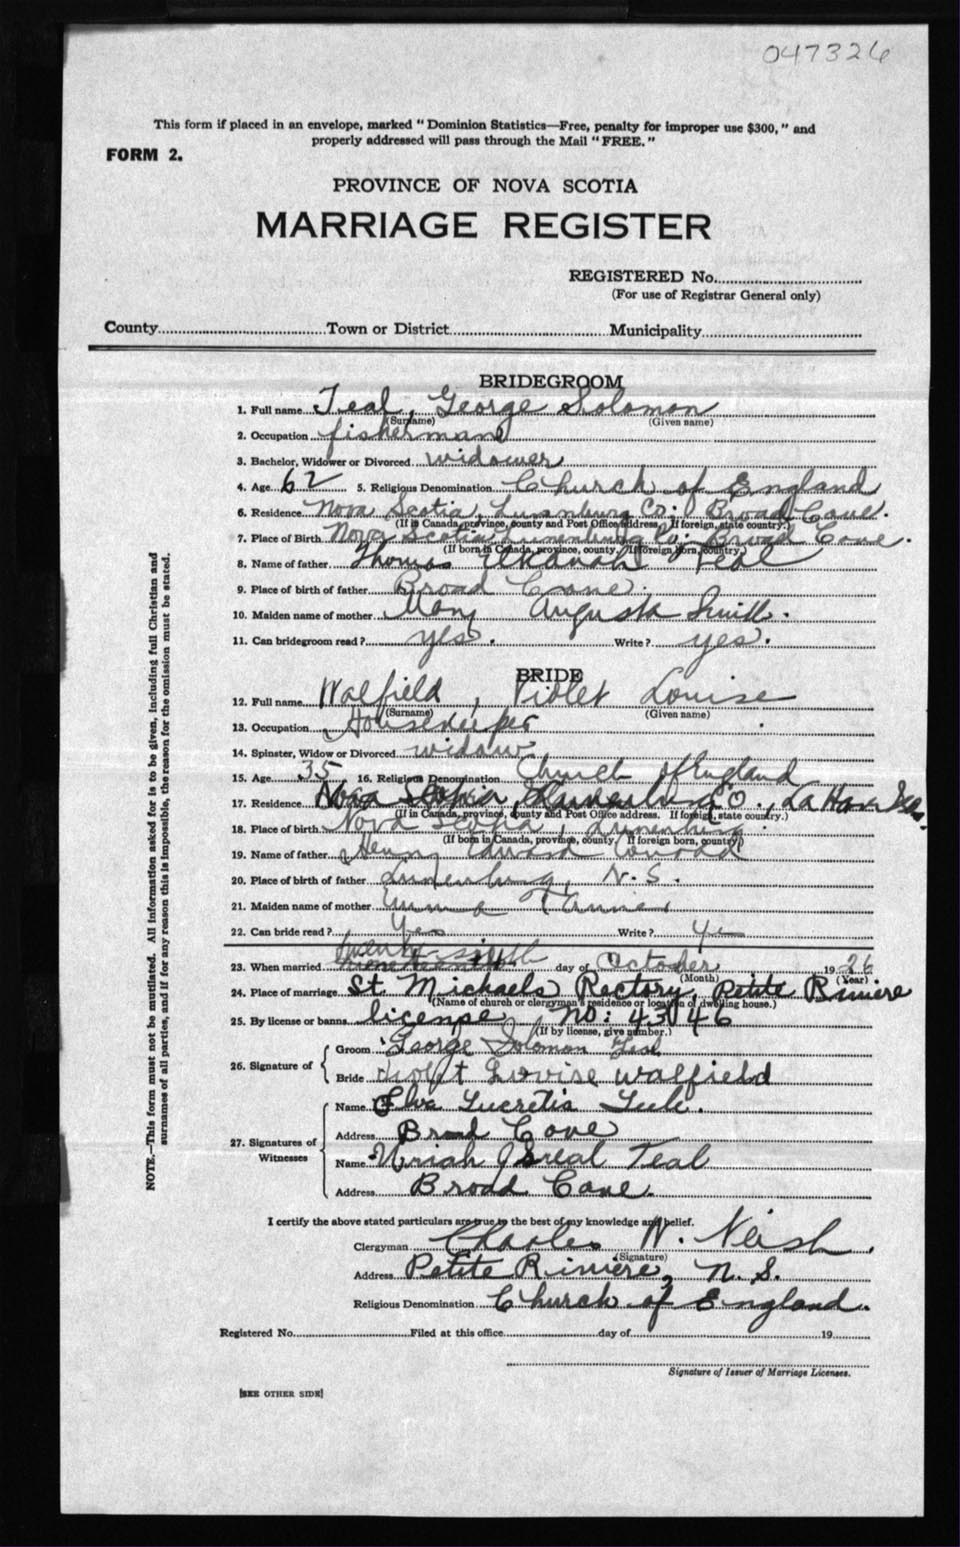 047326
This form if placed in an envelope, marked "Dominion Statistics—Free, penalty for improper use $300," and
properly addressed will pass through the Mail "FREE."
FORM 2.
PROVINCE OF NOVA SCOTIA
MARRIAGE REGISTER
REGISTERED No.
(For use of Registrar General only)
County Town or District Municipality
BRIDEGROOM
1. Full name Teal, George Solomon
(Surname) (Given name)
2. Occupation fisherman
3. Bachelor, Widower or Divorced widower
4. Age 62 5. Religious Denomination Church of England
6. Residence Nova Scotia, Lunenburg Co: Broad Cove.
(If in Canada, province, county and Post Office address. If foreign, state country.)
7. Place of Birth Nova Scotia Lunenburg Co: Broad Cove.
(If born in Canada, province, county. If foreign born, country.)
8. Name of father Thomas Elkanah Teal
9. Place of birth of father Broad Cove.
10. Maiden name of mother Mary Augusta Smith.
11. Can bridegroom read? yes. Write? yes.
BRIDE
12. Full name Walfield, Violet Louise
(Surname) (Given name)
13. Occupation Housekeeper
14. Spinster, Widow or Divorced widow
15. Age 35 16. Religious Denomination Church of England
17. Residence Nova Scotia, Lunenburg Co., La Have Isds.
(If in Canada, province, county and Post Office address. If foreign, state country.)
18. Place of birth Nova Scotia, Lunenburg
(If born in Canada, province, county. If foreign born, country.)
19. Name of father Henry Edward Conrad
20. Place of birth of father Lunenburg, N.S.
21. Maiden name of mother Emma Tanner
22. Can bride read? Yes Write? Yes
23. When married twenty sixth day of October 1926
(Month) (Year)
24. Place of marriage St. Michaels Rectory, Petite Riviere
(Name of church or clergyman's residence or location of dwelling house.)
25. By license or banns license No: 43146
(If by license, give number.)
26. Signature of
Groom George Solomon Teal
Bride Violet Lovise Walfield
27. Signatures of Witnesses
Name Elva Lucretia
Address Broad Cove
Name Uriah Isreal Teal
Address Broad Cove.
I certify the above stated particulars are true to the best of my knowledge and belief.
Clergyman Charles W. Neish.
(Signature)
Address Petite Riviere, N.S.
Religious Denomination Church of England.
Registered No. Filed at this office day of 19
Signature of Issuer of Marriage Licenses.
[SEE OTHER SIDE]
NOTE.—This form must not be mutilated. All information asked for is to be given, including full Christian and
surnames of all parties, and if for any reason this is impossible, the reason for the omission must be stated.